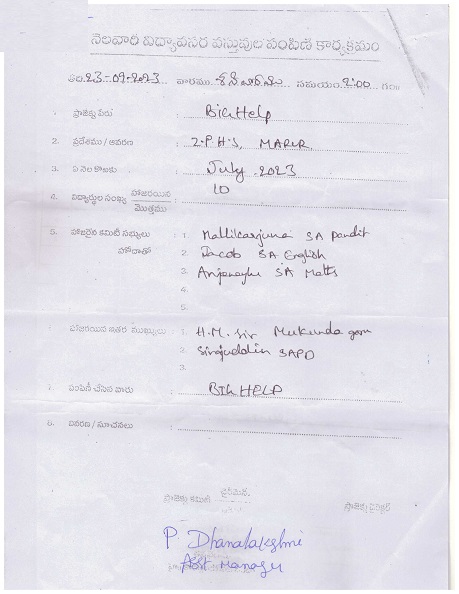 నెలవారి విద్యావసర వస్తువుల పంపిణీ కార్యక్రమం
తేది.23-09-2023 వారము శనివారము సమయం.2:00 గం॥
1. ప్రాజెక్టు పేరు : BigHelp
2. ప్రదేశము / ఆవరణ : Z.P.H.S, MARUR
3. ఏ నెల కొఱకు : July 2023
4. విద్యార్థుల సంఖ్య హాజరయిన / మొత్తము : 10
5. హాజరైన కమిటీ సభ్యులు : 1. Mallikarjuna SA Pandit
హోదాతో 2. Jacob SA English
3. Anjaneyulu SA Maths
4.
5.
హాజరయిన ఇతర ముఖ్యులు : 1. H.M. Sir Mukunda garu
2. Sirajuddin SAPD
3.
7. పంపిణీ చేసిన వారు : BIG HELP
8. వివరణ / సూచనలు :
ప్రాజెక్టు కమిటీ ఛైర్మెన్.
ప్రాజెక్టు డైరెక్టర్
P Dhanalakshmi
Asst Manager